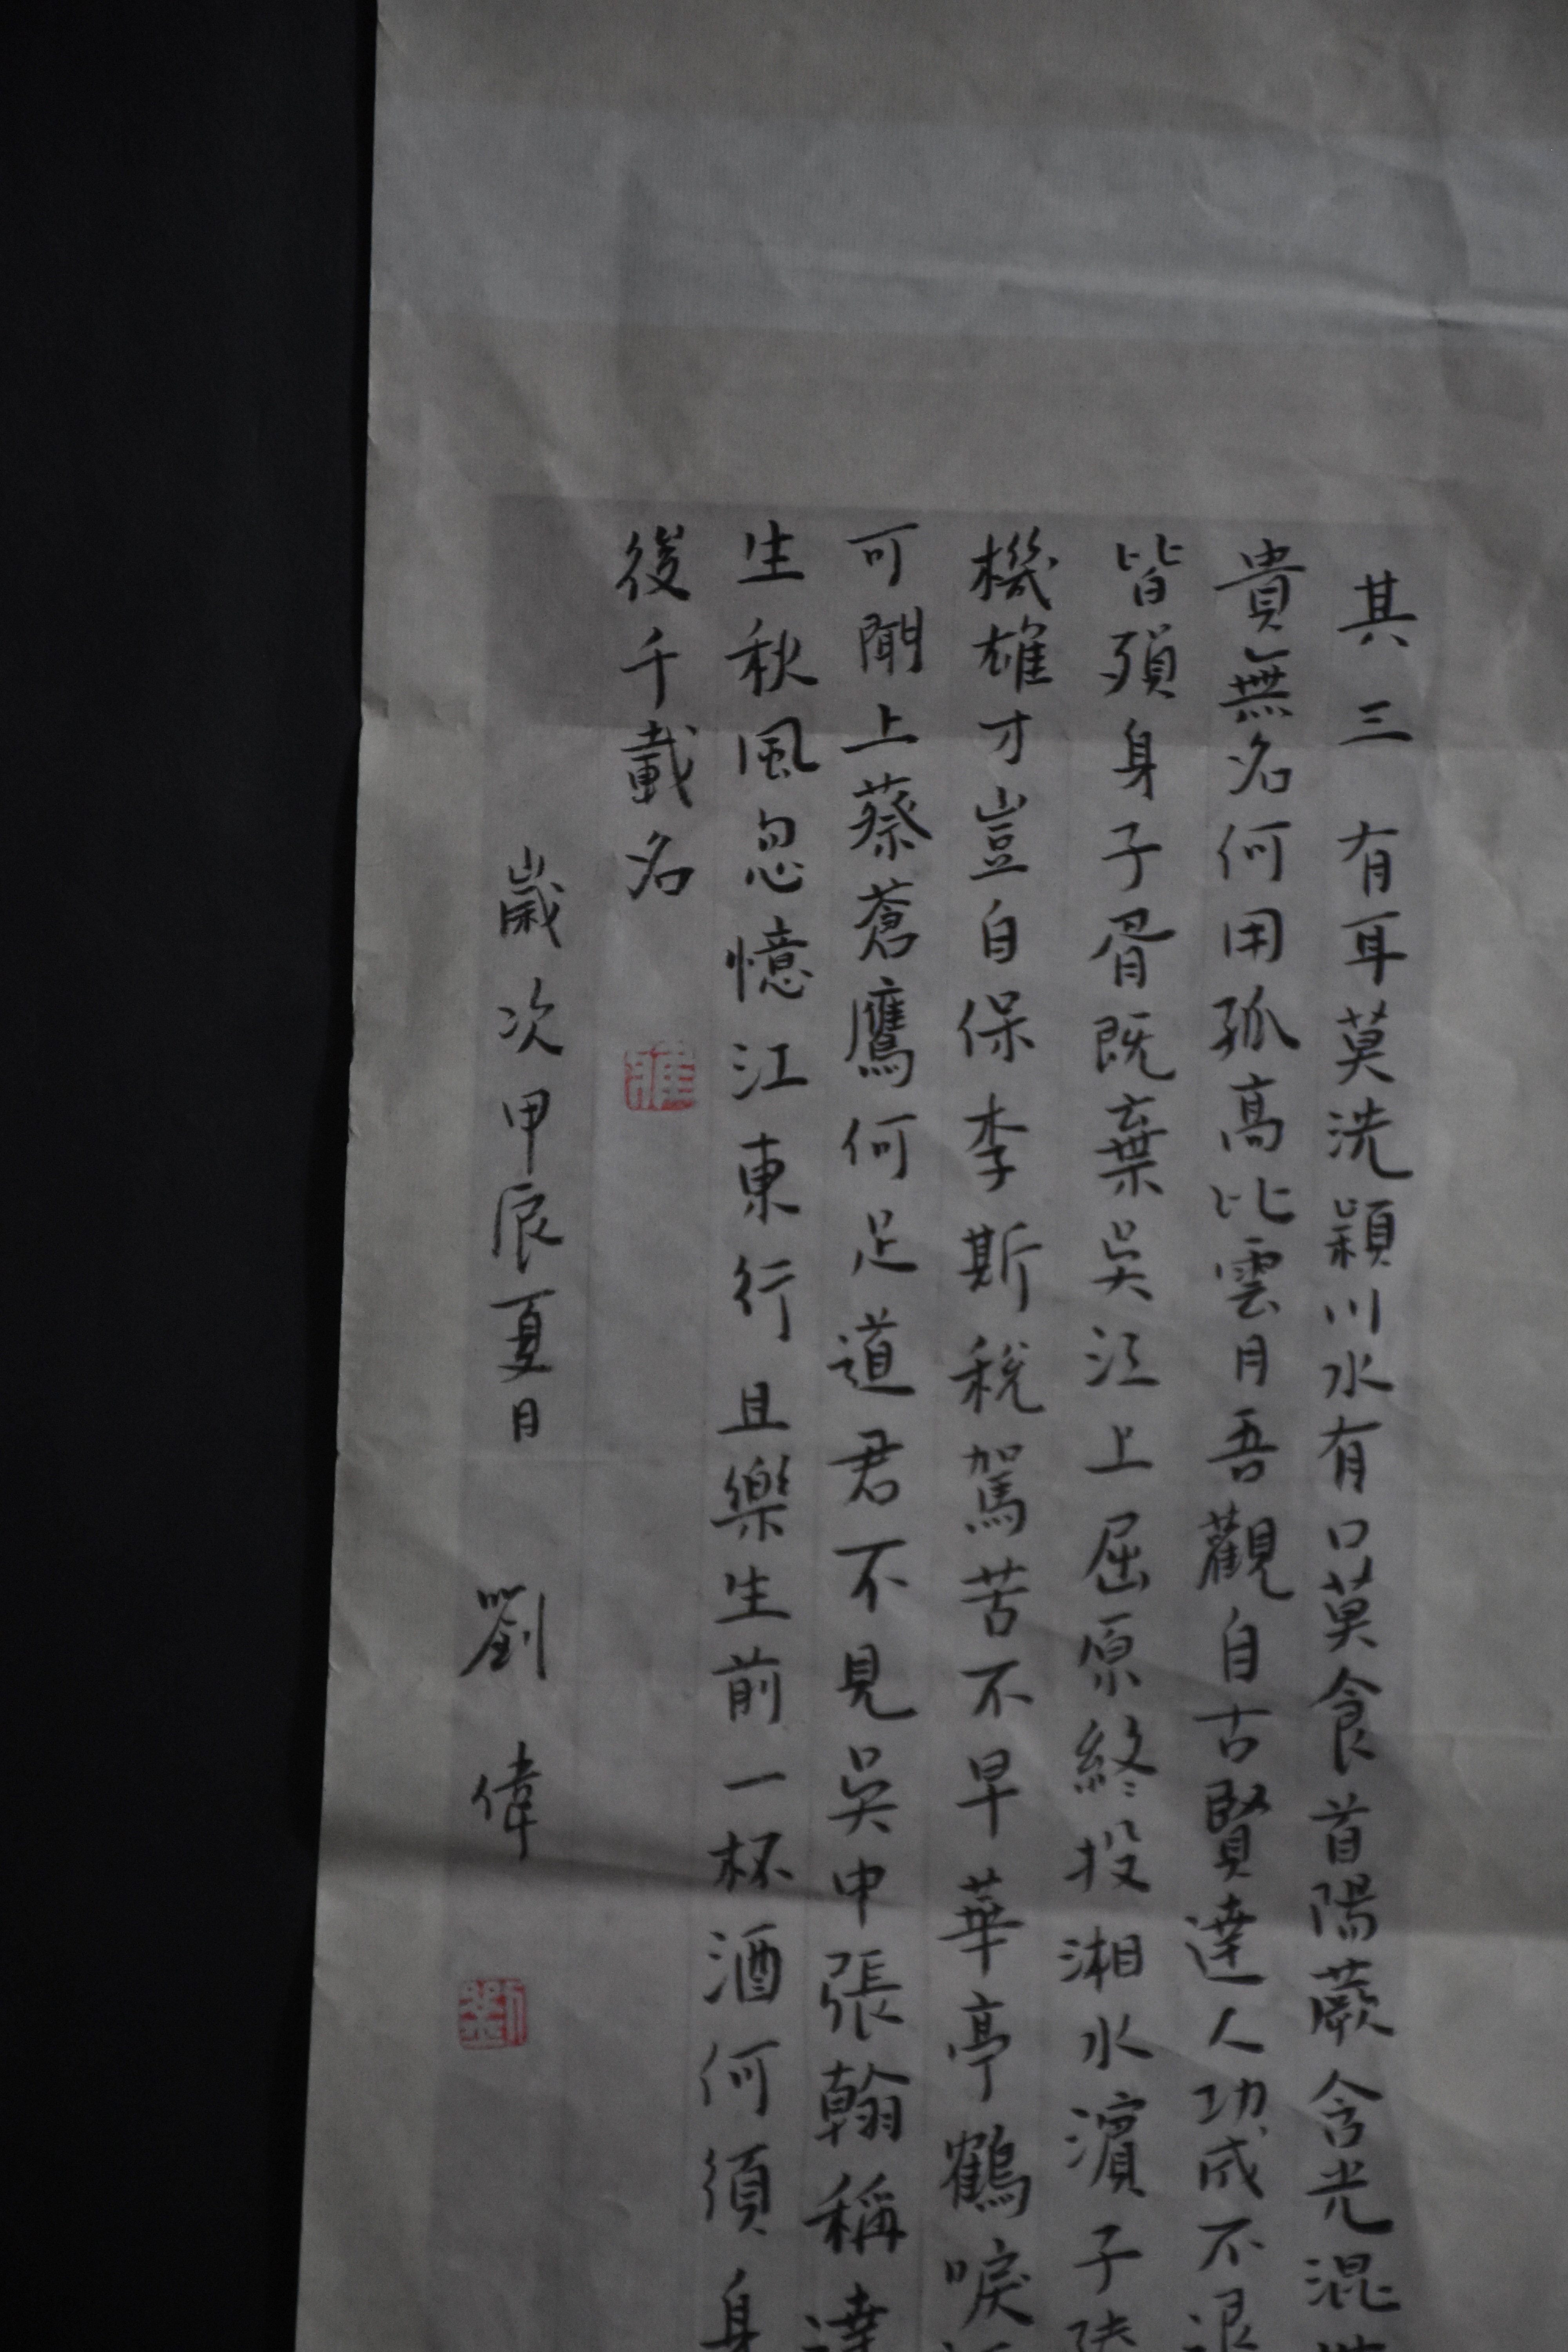 其三 有耳莫洗潁川水有口莫食首陽蕨含光混
貴無名何用孤高比雲月吾觀自古賢達人功成不退
皆殞身子胥既棄吳江上屈原終投湘水濱子陸
機雄才豈自保李斯稅駕苦不早華亭鶴唳
可聞上蔡蒼鷹何足道君不見吳中張翰稱達
生秋風忽憶江東行且樂生前一杯酒何須身
後千載名
歲次甲辰夏日 劉偉